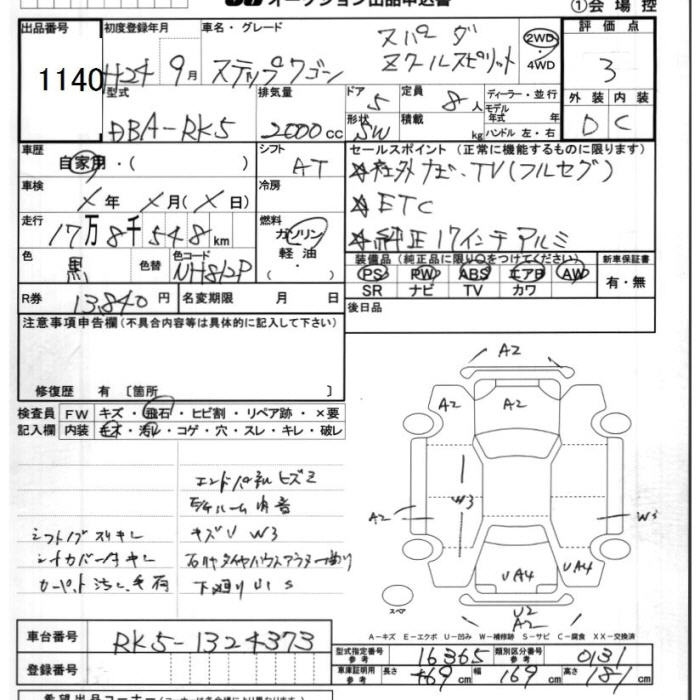 オークション出品申込書 ①会場控
出品番号 初度登録年月 車名・グレード 評価点
1140 H24 9月 ステップワゴン スパーダ Zクールスピリット 2WD・4WD 3
型式 排気量 ドア 5 定員 8人 ディーラー・並行 外装 内装
DBA-RK5 2000cc 形状 SW 積載 kg モデル年式 年 ハンドル 左・右 D C
車歴 シフト セールスポイント(正常に機能するものに限ります)
自家用・( ) AT ☆社外ナビ、TV(フルセグ)
車検 冷房 ☆ETC
×年 ×月(×日)
走行 燃料 ☆純正17インチアルミ
17万8千548km ガソリン・軽油・
色 色替 色コード 装備品(純正品に限り○をつけてください) 新車保証書
黒 NH812P PS PW ABS エアB AW 有・無
SR ナビ TV カワ
R券 13,840円 名変期限 月 日 後日品
注意事項申告欄(不具合内容等は具体的に記入して下さい)
修復歴 有 〔箇所 〕
検査員 FW キズ・飛石・ヒビ割・リペア跡・×要
記入欄 内装 コゲ・穴・スレ・キレ・破レ
シフトノブスリキレ キズU W3
下廻り
A2
A2 A2
W3
A2 W3
UA4 UA4
スペア U2
A2
A-キズ E-エクボ U-凹み W-補修跡 S-サビ C-腐食 XX-交換済
車台番号 RK5-1324373
型式指定番号 参考 16365 類別区分番号 参考 0131
登録番号 車庫証明用 参考 長さ 469cm 幅 169cm 高さ 181cm
希望出品コーナー